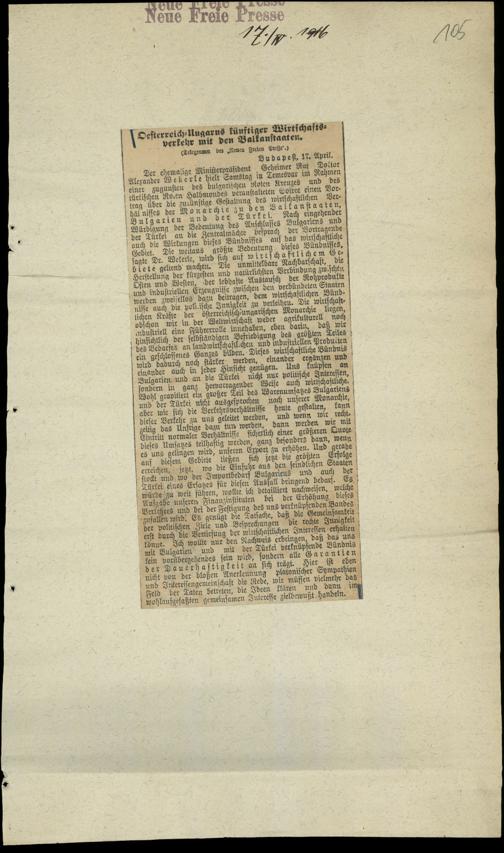 Neue Freie Presse
Neue Freie Presse
17./IV. 1916
105
Oesterreich-Ungarns künftiger Wirtschafts-
verkehr mit den Balkanstaaten.
(Telegramm der „Neuen Freien Presse“.)
Budapest, 17. April.
Der ehemalige Ministerpräsident Geheimer Rat Doktor
Alexander Wekerle hielt Samstag in Temesvar im Rahmen
einer zugunsten des bulgarischen Roten Kreuzes und des
türkischen Roten Halbmondes veranstalteten Soiree einen Vor-
trag über die zukünftige Gestaltung des wirtschaftlichen Ver-
hältnisses der Monarchie zu den Balkanstaaten,
Bulgarien und der Türkei. Nach eingehender
Würdigung der Bedeutung des Anschlusses Bulgariens und
der Türkei an die Zentralmächte besprach der Vortragende
auch die Wirkungen dieses Bündnisses auf das wirtschaftliche
Gebiet. Die weitaus größte Bedeutung dieses Bündnisses,
sagte Dr. Wekerle, wird sich auf wirtschaftlichem Ge-
biete geltend machen. Die unmittelbare Nachbarschaft, die
Herstellung der kürzesten und natürlichsten Verbindung zwischen
Osten und Westen, der lebhafte Austausch der Rohprodukte
und industriellen Erzeugnisse zwischen den verbündeten Staaten
werden zweifellos dazu beitragen, dem wirtschaftlichen Bünd-
nisse auch die politische Innigkeit zu verleihen. Die wirtschaft-
lichen Kräfte der österreichisch-ungarischen Monarchie liegen,
obschon wir in der Weltwirtschaft weder agrikulturell noch
industriell eine Führerrolle innehaben, eben darin, daß wir
hinsichtlich der selbständigen Befriedigung des größten Teiles
des Bedarfes an landwirtschaftlichen und industriellen Produkten
ein geschlossenes Ganzes bilden. Dieses wirtschaftliche Bündnis
wird dadurch noch stärker werden, einander ergänzen und
einander auch in jeder Hinsicht genügen. Uns knüpfen an
Bulgarien und an die Türkei nicht nur politische Interessen,
sondern in ganz hervorragender Weise auch wirtschaftliche.
Wohl gravitiert ein großer Teil des Warenumsatzes Bulgariens
und der Türkei nicht ausgesprochen nach unserer Monarchie,
aber wie sich die Verkehrsverhältnisse heute gestalten, kann
dieser Verkehr zu uns geleitet werden, und wenn wir recht-
zeitig das Unsrige dazu tun werden, dann werden wir mit
Eintritt normaler Verhältnisse sicherlich einer größeren Quote
dieses Umsatzes teilhaftig werden, ganz besonders dann, wenn
es uns gelingen wird, unseren Export zu erhöhen. Und gerade
auf diesem Gebiete ließen sich jetzt die größten Erfolge
erreichen, jetzt, wo die Einfuhr aus den feindlichen Staaten
stockt und wo der Importbedarf Bulgariens und auch der
Türkei eines Ersatzes für diesen Ausfall dringend bedarf. Es
würde zu weit führen, wollte ich detailliert nachweisen, welche
Aufgabe unseren Finanzinstituten bei der Erhöhung dieses
Verkehrs und bei der Festigung des uns verknüpfenden Bandes
zufallen wird. Es genügt die Tatsache, daß die Gemeinsamkeit
der politischen Ziele und Besprechungen die rechte Innigkeit
erst durch die Vertiefung der wirtschaftlichen Interessen erhalten
könne. Ich wollte nur den Nachweis erbringen, daß das uns
mit Bulgarien und mit der Türkei verknüpfende Bündnis
kein vorübergehendes sein wird, sondern alle Garantien
der Dauerhaftigkeit an sich trägt. Hier ist eben
nicht von der bloßen Anerkennung platonischer Sympathien
und Interessengemeinschaft die Rede, wir müssen vielmehr das
Feld der Taten betreten, die Ideen klären und dann im
wohlaufgefaßten gemeinsamen Interesse zielbewußt handeln.